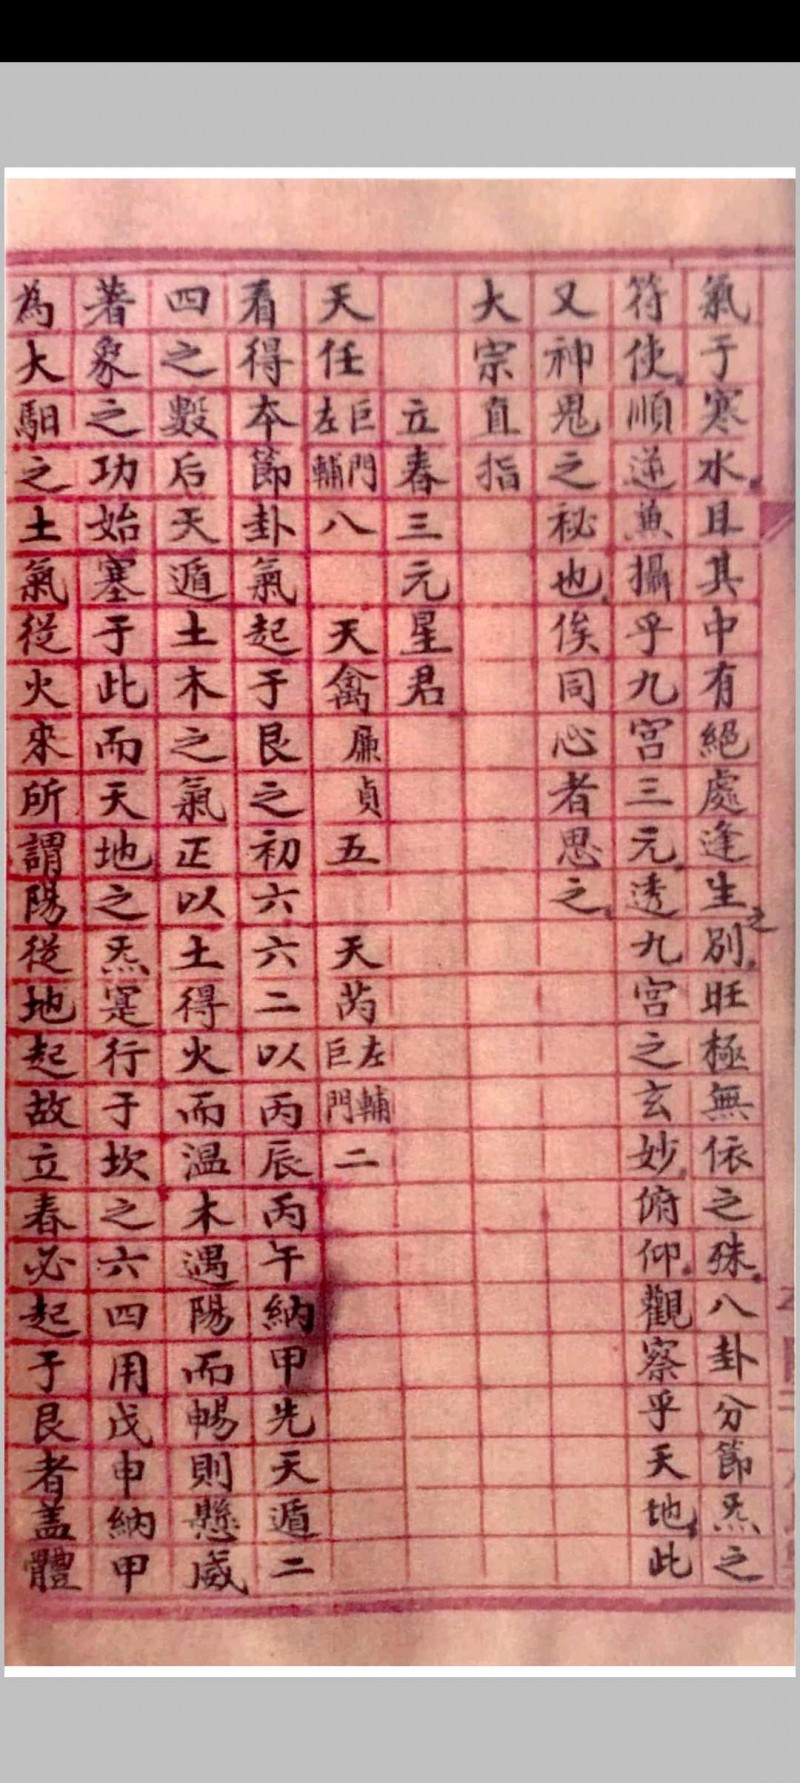 氣于寒水且其中有絕處逢生之別旺極無依之殊八卦分節炁之
符使順逆兼攝乎九宮三元透九宮之玄妙俯仰觀察乎天地此
又神鬼之秘也俟同心者思之
大宗直指
立春三元星君
天任巨門左輔八 天禽廉貞五 天芮左輔巨門二
看得本節卦氣起于艮之初六六二以丙辰丙午納甲先天遁二
四之數后天遁土木之氣正以土得火而溫木遇陽而暢則懸威
著象之功始塞于此而天地之炁寔行于坎之六四用戊申納甲
為大馹之土氣從火來所謂陽從地起故立春必起于艮者盖體